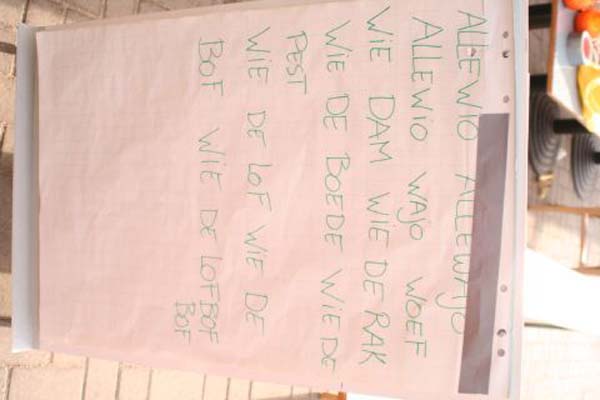 ALLEWIO ALLEWAJO
ALLEWIO WAJO WOEF
WIE DAM WIE DE RAK
WIE DE BOEDE WIE DE
PEST
WIE DE LOF WIE DE
BOF WIE DE LOFBOF
BOF